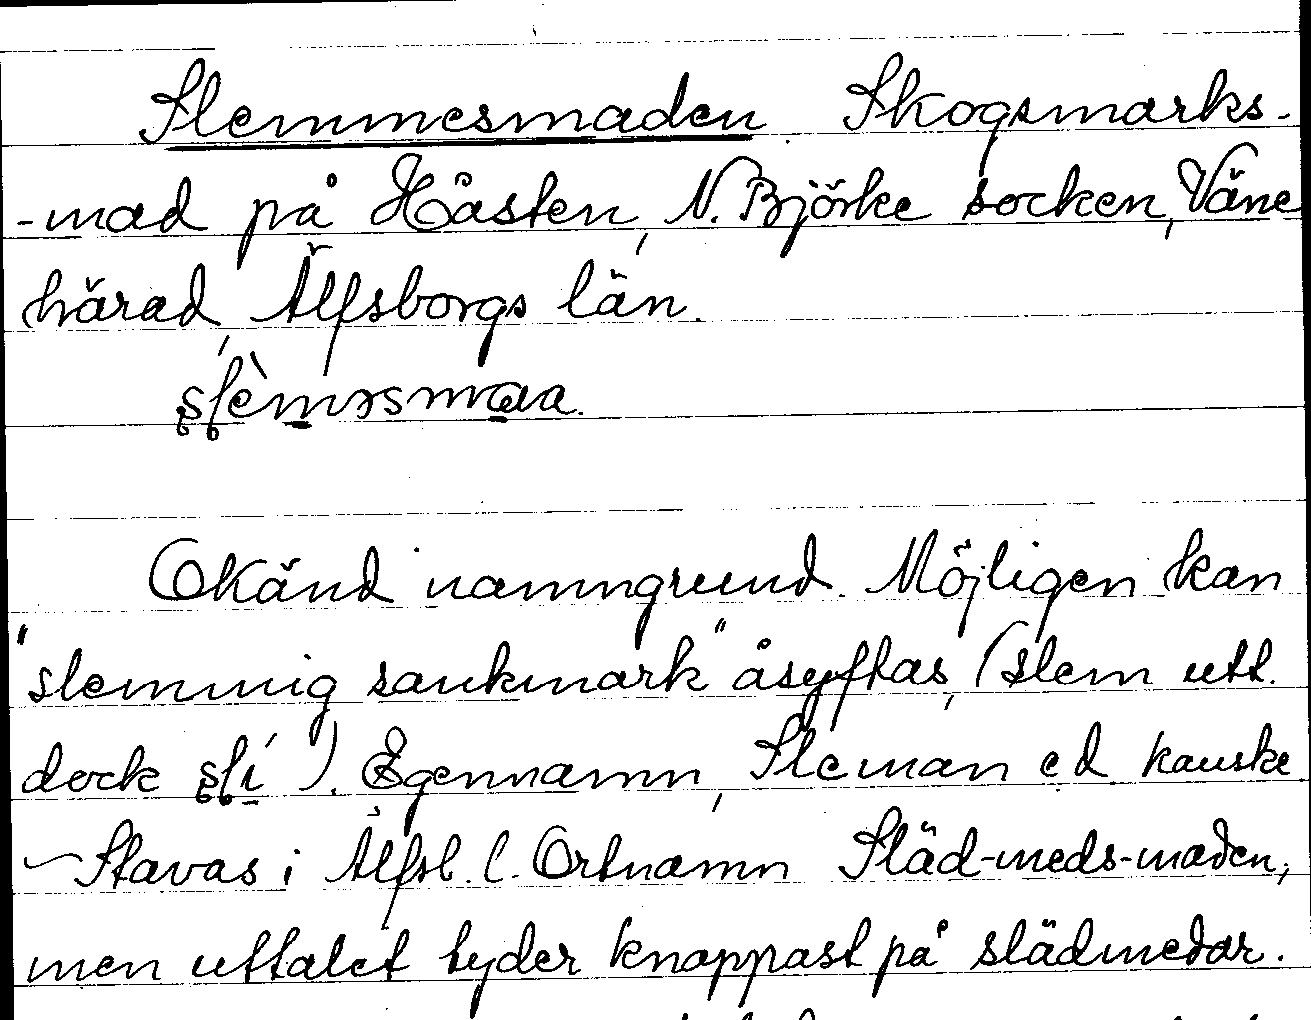 Slemmesmaden. Skogsmarks-
-mad på Håsten, N. Björke socken, Väne
härad, Älfsborgs län.
slèmɘsmaa.
Okänd namngrund. Möjligen kan
"slemmig sankmark" åsyftas, (slem utt.
dock slí ). Egennamn, Sleman ed kanske
– Stavas i Älfsb. l. Ortnamn Släd-meds-maden,
men uttalet tyder knappast på slädmedar.